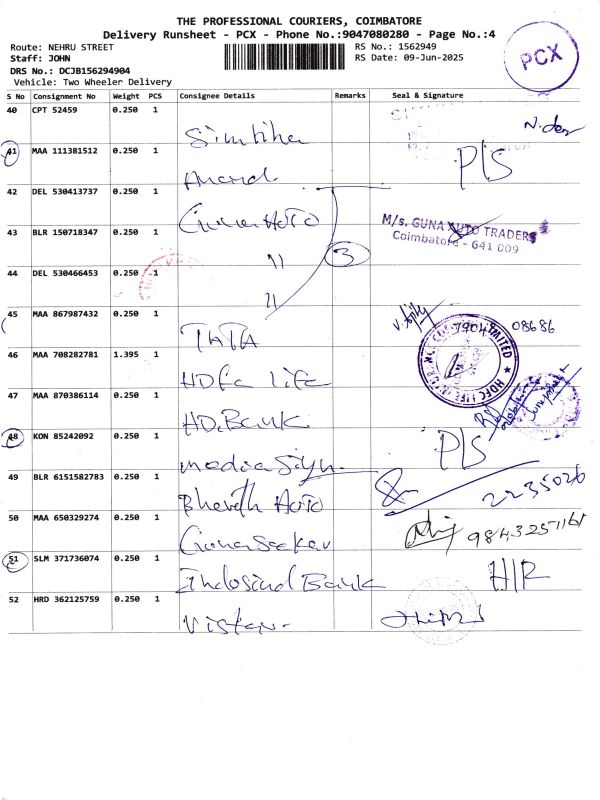 THE PROFESSIONAL COURIERS, COIMBATORE
Delivery Runsheet - PCX - Phone No.:9047080280 - Page No.:4
Route: NEHRU STREET
Staff: JOHN
DRS No.: DCJB156294904
Vehicle: Two Wheeler Delivery
RS No.: 1562949
RS Date: 09-Jun-2025
PCX
S No Consignment No Weight PCS Consignee Details Remarks Seal & Signature
40 CPT 52459 0.250 1
41 MAA 111381512 0.250 1 P/S
Anand
42 DEL 530413737 0.250 1
Guna Auto
43 BLR 150718347 0.250 1 3 M/s. GUNA AUTO TRADERS
Coimbatore - 641 009
11
44 DEL 530466453 0.250 1
11
45 MAA 867987432 0.250 1 79048 08686
TATA
46 MAA 708282781 1.395 1
HDFC Life
47 MAA 870386114 0.250 1
HD.Bank
48 KON 85242092 0.250 1 P/S
media Sign
49 BLR 6151582783 0.250 1 2235026
Bharath Auto
50 MAA 650329274 0.250 1 9843251161
51 SLM 371736074 0.250 1 H/R
Indosind Bank
52 HRD 362125759 0.250 1